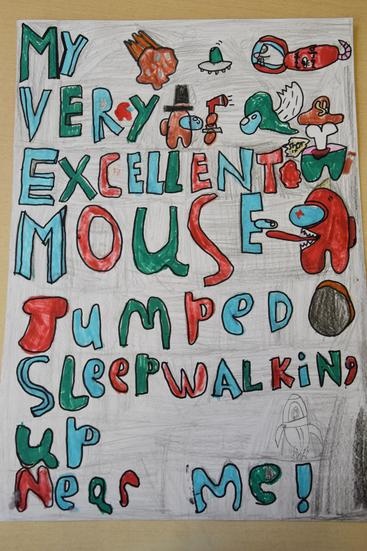 My
VERy
EXCELLENT
MOUSE
JUMPED
SLeepWALKiNg
UP
Near Me!